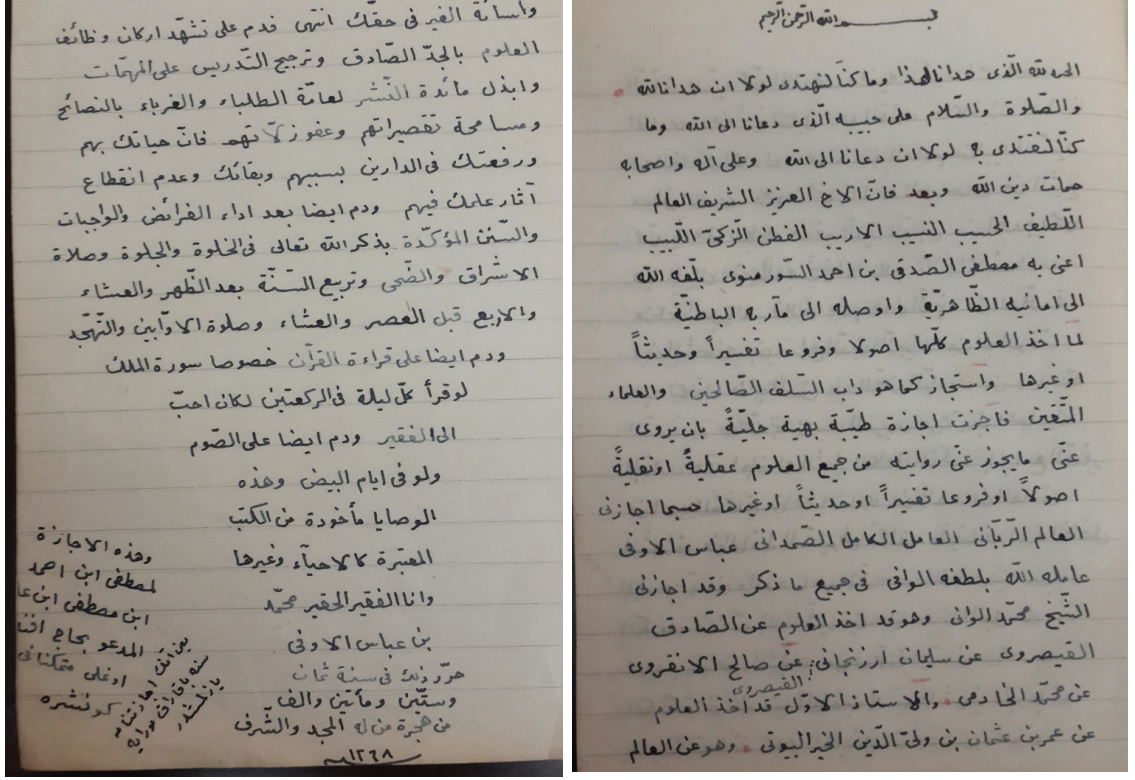 بسم الله الرحمن الرحيم
الحمد لله الّذى هدانا لهذا وما كنّا لنهتدى لولا ان هدانا الله
والصّلوة والسّلام على حبيبه الّذى دعانا الى الله وما
كنّا لنقتدى به لولا ان دعانا الى الله وعلى آله واصحابه
حمات دين الله وبعد فانّ الاخ العزيز الشريف العالم
اللّطيف الحسيب النسيب الاريب الفطن الزّكىّ اللّبيب
اعنى به مصطفى الصّدقى بن احمد السّورمنوى بلّغه الله
الى امانيه الظّاهريّة واوصله الى مآربه الباطنيّة
لما اخذ العلوم كلّها اصولا وفروعا تفسيراً وحديثاً
او غيرها واستجاز كما هو داب السّلف الصّالحين والعلماء
المتّقين فاجزت اجازة طيّبة بهية جليّةً بان يروى
عنّى ما يجوز عنّى روايته من جميع العلوم عقليةً او نقليةً
اصولاً او فروعا تفسيراً او حديثاً او غيرها حسبما اجازنى
العالم الرّبّانى العامل الكامل الصّمدانى عباس الاوفى
عامله الله بلطفه الوافى فى جميع ما ذكر وقد اجازنى
الشّيخ محمّد الوانى وهو قد اخذ العلوم عن الصّادق
القيصروى عن سليمان ارزنجانى عن صالح الانقروى
القيصروى
عن محمّد الخادمى والاستاذ الاوّل قد اخذ العلوم
عن عمر بن عثمان بن ولىّ الدّين الخيرالبوتى وهو عن العالم
واسائة الغير فى حقّك انتهى قدم على تشهّد اركان وظائف
العلوم بالجدّ الصّادق وترجيح التّدريس على المهمّات
وابذل مائدة النّشر لعامّة الطلباء والغرباء بالنصائح
ومسامحة تقصيراتهم وعفو زلّاتهم فانّ حياتك بهم
ورفعتك فى الدارين بسببهم وبقائك وعدم انقطاع
آثار علمك فيهم ودم ايضا بعد اداء الفرائض والواجبات
والسّنن المؤكّدة بذكر الله تعالى فى الخلوة والجلوة وصلاة
الاشراق والضّحى وتربيع السّنّة بعد الظّهر والعشاء
والاربع قبل العصر والعشاء وصلوة الاوّابين والتّهجّد
ودم ايضا على قراءة القرآن خصوصا سورة الملك
لو قرأ كلّ ليلة فى الركعتين لكان احبّ
الى الفقير ودم ايضا على الصّوم
ولو فى ايام البيض وهذه
الوصايا مأخودة من الكتب
المعتبرة كالاحيآء وغيرها
وانا الفقير الحقير محمّد
بن عباس الاوفى
حرّر ذلك فى سنة ثمان
وستّين ومأتين والف
من هجرة من له المجد والشّرف
١٢٦٨
وهذه الاجازة
لمصطفى ابن احمد
ابن مصطفى ابن
المدعو بحاج
اوغلى